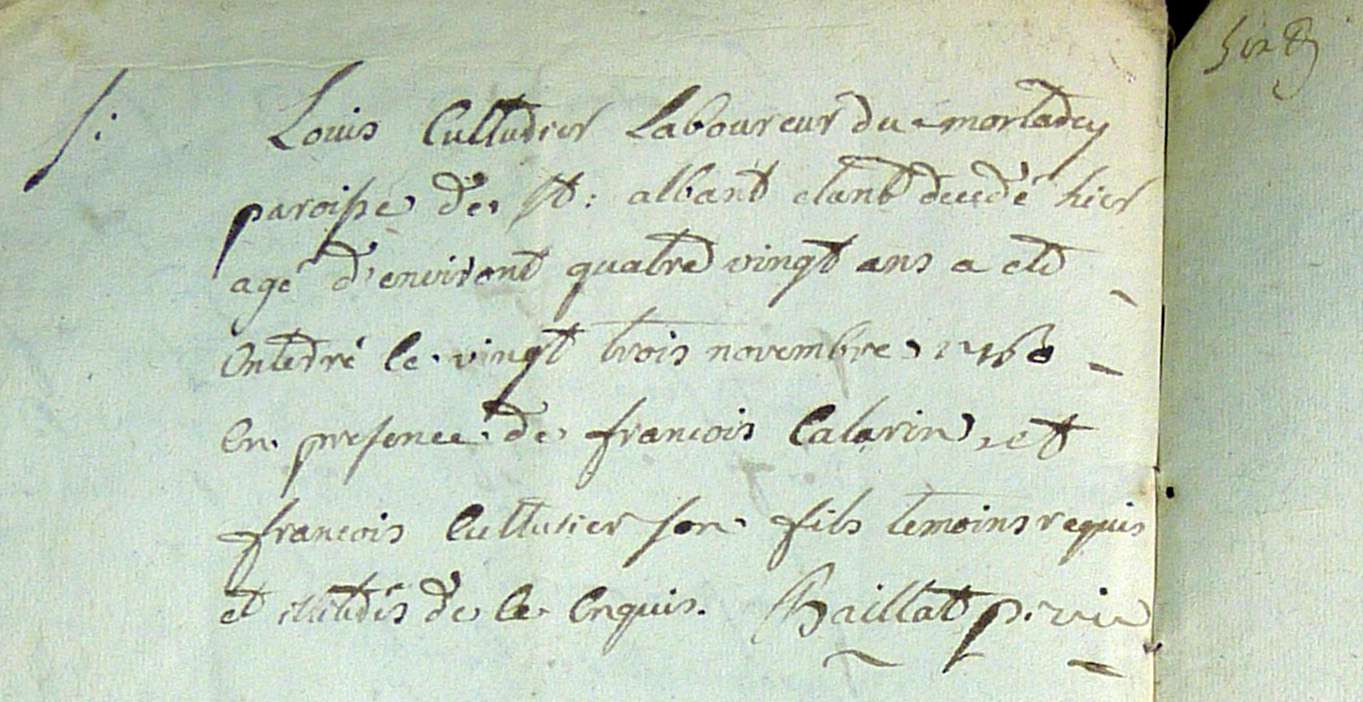 Louis Culturier Laboureur du mortadey
paroisse de St: albant etant decedé hier
agé d'environt quatre vingt ans a eté
enterré le vingt trois novembre 1760
en presence de francois Calarin et
francois Culturier son fils temoins requis
et illitérés de ce enquis. Baillat p. vic